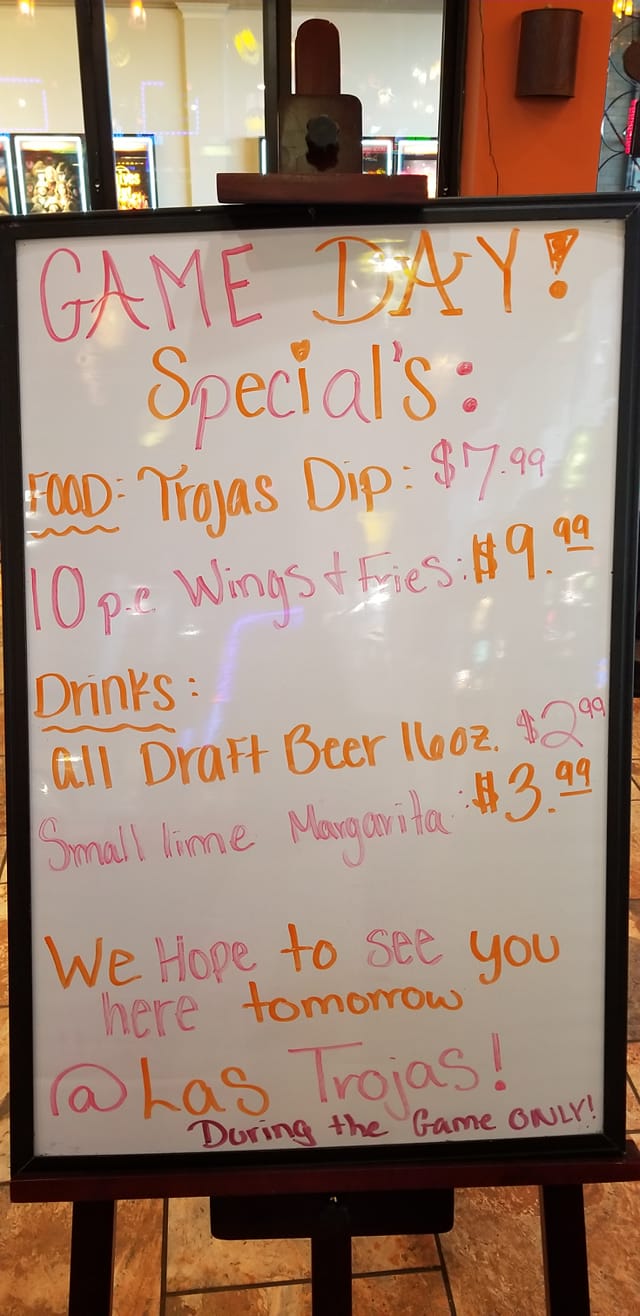 GAME DAY!
Special's:
FOOD: Trojas Dip: $7.99
10 p.c Wings & Fries: $9.99
Drinks:
all Draft Beer 16oz. $2.99
Small lime Margarita: $3.99
We Hope to see you
here tomorrow
@ Las Trojas!
During the Game ONLY!